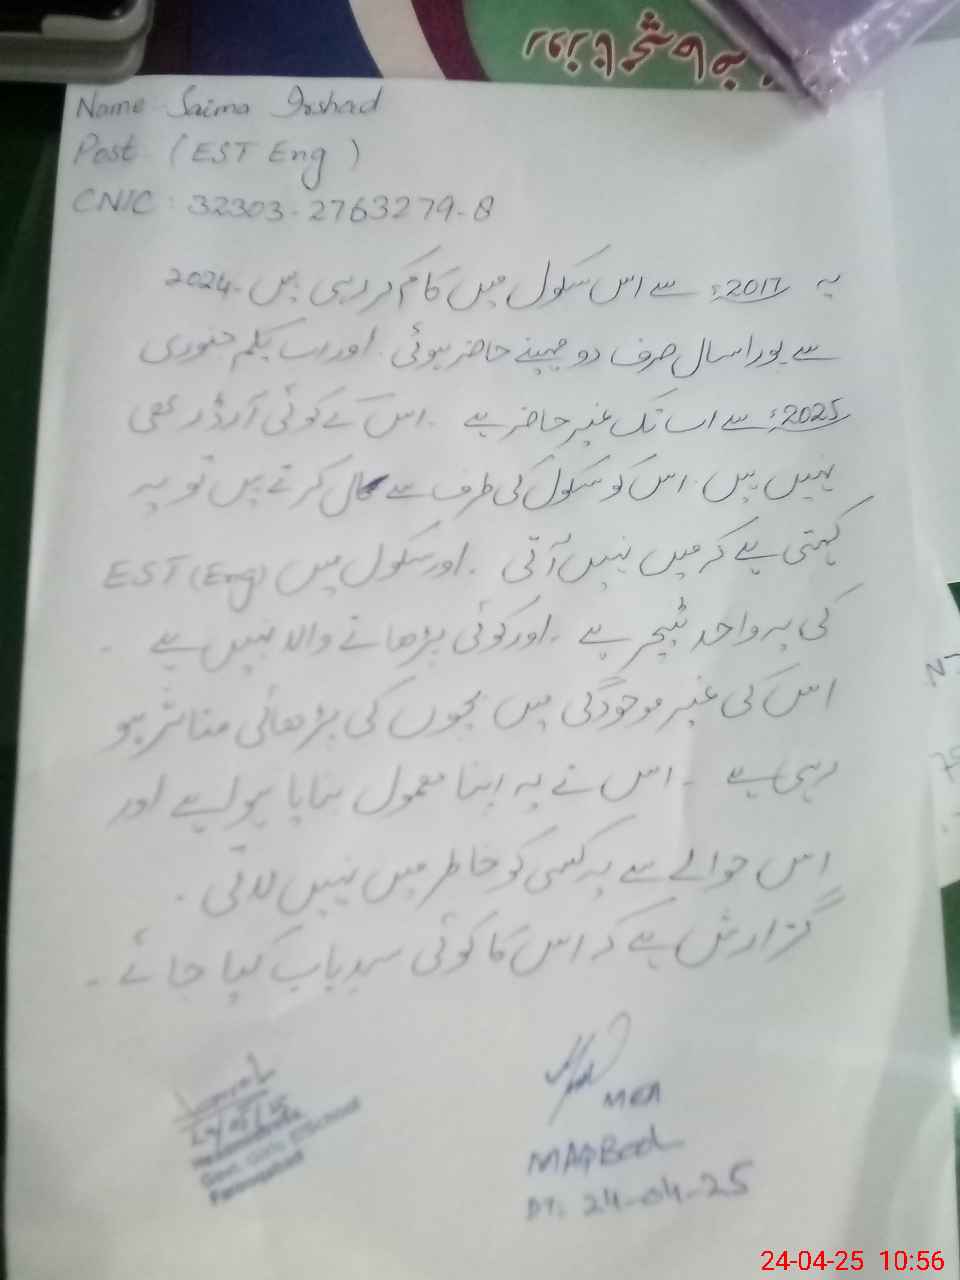 Name Saima Irshad
Post (EST Eng)
CNIC : 32303-2763279-8
یہ 2017ء سے اس سکول میں کام کر رہی ہیں۔ 2024
سے پورا سال صرف دو مہینے حاضر ہوئی۔ اور اب یکم جنوری
2025ء سے اب تک غیر حاضر ہے۔ اس کے کوئی آرڈر بھی
نہیں ہیں۔ اس کو سکول کی طرف سے کال کرتے ہیں تو یہ
کہتی ہے کہ میں نہیں آتی۔ اور سکول میں EST (Eng)
کی یہ واحد ٹیچر ہے۔ اور کوئی پڑھانے والا نہیں ہے۔
اس کی غیر موجودگی میں بچوں کی پڑھائی متاثر ہو
رہی ہے۔ اس نے یہ اپنا معمول بنایا ہوا ہے اور
اس حوالے سے یہ کسی کو خاطر میں نہیں لاتی۔
گزارش ہے کہ اس کا کوئی سدباب کیا جائے۔
MEA
MAQBool
DT: 24-04-25
Headmistress
Govt. Girls E/School
24-04-25 10:56